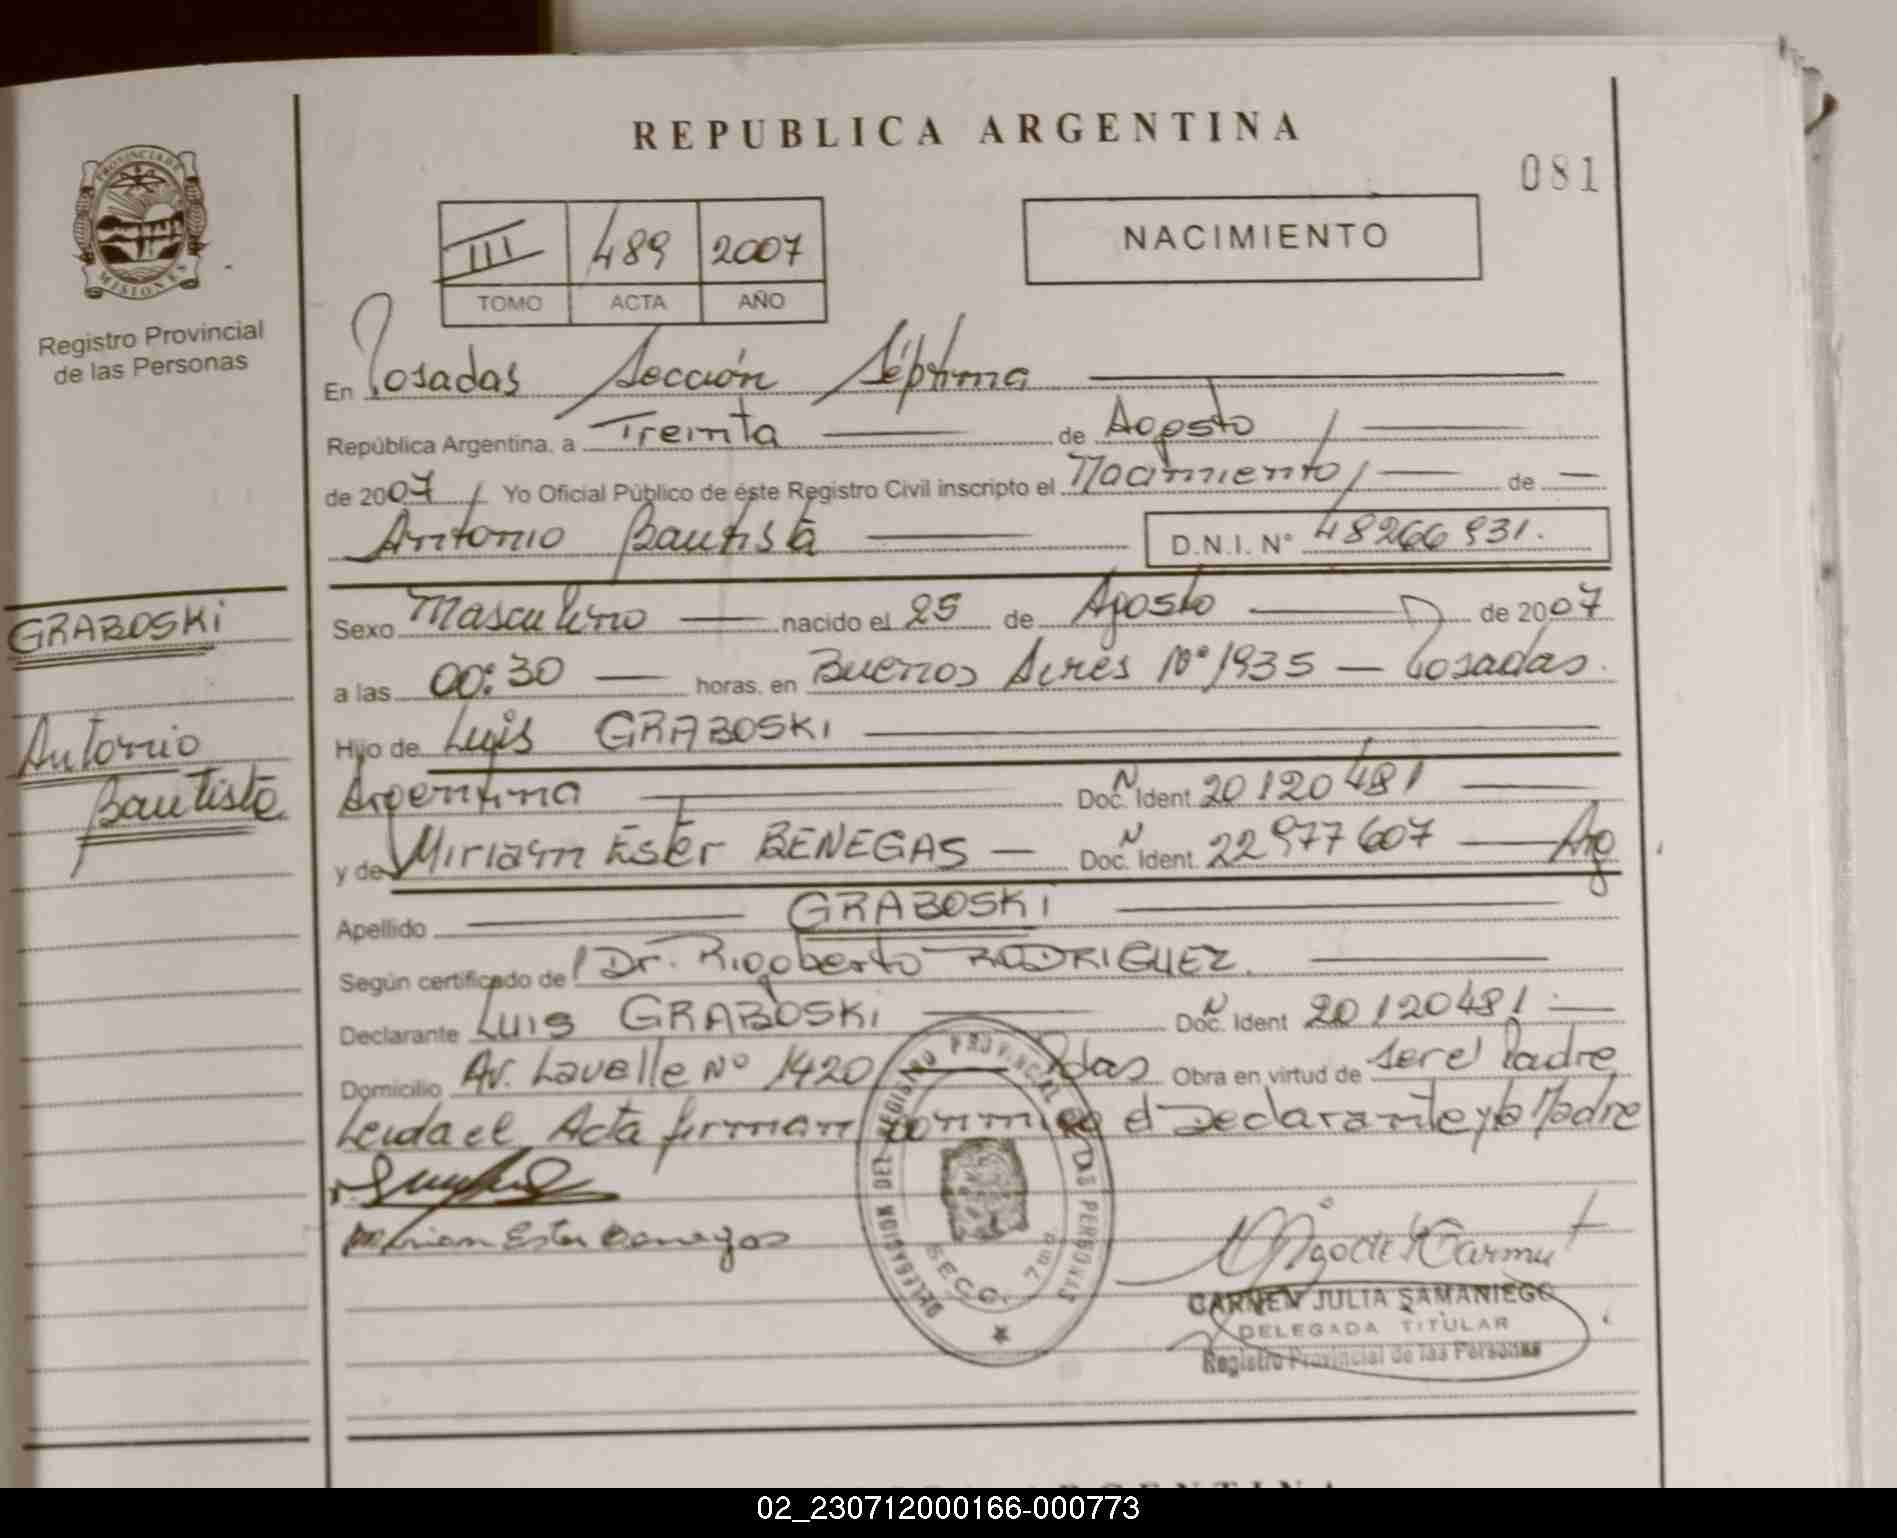 REPUBLICA ARGENTINA
081
PROVINCIA DE
MISIONES
Registro Provincial
de las Personas
III 489 2007
TOMO ACTA AÑO
NACIMIENTO
En Posadas Sección Séptima
República Argentina, a Treinta de Agosto
de 2007 Yo Oficial Público de éste Registro Civil inscripto el Nacimiento de
Antonio Bautista D.N.I. N° 48266931.
GRABOSKi
Antonio
Bautista
Sexo Masculino nacido el 25 de Agosto de 2007
a las 00:30 horas, en Buenos Aires N° 1935 - Posadas.
Hijo de Luis GRABOSKI
Argentina Doc. Ident N 20120481
y de Miriam Ester BENEGAS - Doc. Ident. N 22977607 Arg
Apellido GRABOSKI
Según certificado de Dr. Rigoberto RODRIGUEZ.
Declarante Luis GRABOSKI Doc. Ident N 20120481
Domicilio Av. Lavalle N° 1420 Pdas Obra en virtud de ser el Padre
Leida el Acta firman conmigo el Declarante y la Madre
Miriam Ester Benegas
DELEGACION DEL REGISTRO PROVINCIAL DE LAS PERSONAS
SECC. 7ma.
CARMEN JULIA SAMANIEGO
DELEGADA TITULAR
Registro Provincial de las Personas
02_230712000166-000773